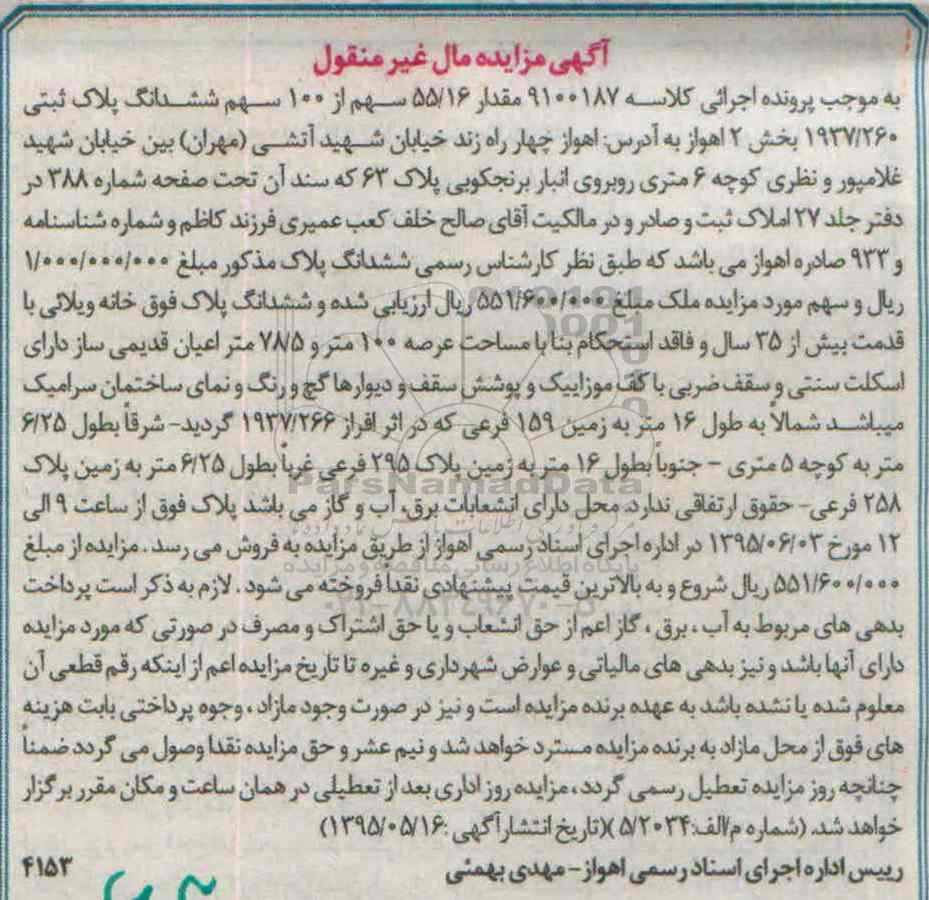 آگهی مزایده مال غیر منقول
به موجب پرونده اجرائی کلاسه ۹۱۰۰۱۸۷ مقدار ۵۵/۱۶ سهم از ۱۰۰ سهم ششدانگ پلاک ثبتی
۱۹۳۷/۲۶۰ بخش ۲ اهواز به آدرس: اهواز چهار راه زند خیابان شهید آتشی (مهران) بین خیابان شهید
غلامپور و نظری کوچه ۶ متری روبروی انبار برنجکوبی پلاک ۶۳ که سند آن تحت صفحه شماره ۳۸۸ در
دفتر جلد ۲۷ املاک ثبت و صادر و در مالکیت آقای صالح خلف کعب عمیری فرزند کاظم و شماره شناسنامه
و ۹۳۳ صادره اهواز می باشد که طبق نظر کارشناس رسمی ششدانگ پلاک مذکور مبلغ ۱/۰۰۰/۰۰۰/۰۰۰
ریال و سهم مورد مزایده ملک مبلغ ۵۵۱/۶۰۰/۰۰۰ ریال ارزیابی شده و ششدانگ پلاک فوق خانه ویلائی با
قدمت بیش از ۳۵ سال و فاقد استحکام بنا با مساحت عرصه ۱۰۰ متر و ۷۸/۵ متر اعیان قدیمی ساز دارای
اسکلت سنتی و سقف ضربی با کف موزاییک و پوشش سقف و دیوارها گچ و رنگ و نمای ساختمان سرامیک
میباشد شمالاً به طول ۱۶ متر به زمین ۱۵۹ فرعی که در اثر افراز ۱۹۳۷/۲۶۶ گردید- شرقاً بطول ۶/۲۵
متر به کوچه ۵ متری - جنوباً بطول ۱۶ متر به زمین پلاک ۲۹۵ فرعی غرباً بطول ۶/۲۵ متر به زمین پلاک
۲۵۸ فرعی- حقوق ارتفاقی ندارد. محل دارای انشعابات برق، آب و گاز می باشد پلاک فوق از ساعت ۹ الی
۱۲ مورخ ۱۳۹۵/۰۶/۰۳ در اداره اجرای اسناد رسمی اهواز از طریق مزایده به فروش می رسد. مزایده از مبلغ
۵۵۱/۶۰۰/۰۰۰ ریال شروع و به بالاترین قیمت پیشنهادی نقداً فروخته می شود. لازم به ذکر است پرداخت
بدهی های مربوط به آب، برق، گاز اعم از حق انشعاب و یا حق اشتراک و مصرف در صورتی که مورد مزایده
دارای آنها باشد و نیز بدهی های مالیاتی و عوارض شهرداری و غیره تا تاریخ مزایده اعم از اینکه رقم قطعی آن
معلوم شده یا نشده باشد به عهده برنده مزایده است و نیز در صورت وجود مازاد، وجوه پرداختی بابت هزینه
های فوق از محل مازاد به برنده مزایده مسترد خواهد شد و نیم عشر و حق مزایده نقدا وصول می گردد ضمناً
چنانچه روز مزایده تعطیل رسمی گردد، مزایده روز اداری بعد از تعطیلی در همان ساعت و مکان مقرر برگزار
خواهد شد. (شماره م/الف:۵/۲۰۳۴)(تاریخ انتشار آگهی: ۱۳۹۵/۰۵/۱۶)
رییس اداره اجرای اسناد رسمی اهواز- مهدی بهمئی ۴۱۵۳
ParsNamadData
پایگاه اطلاع رسانی مناقصه و مزایده
۰۲۱-۸۸۳۴۹۶۷۰-۵